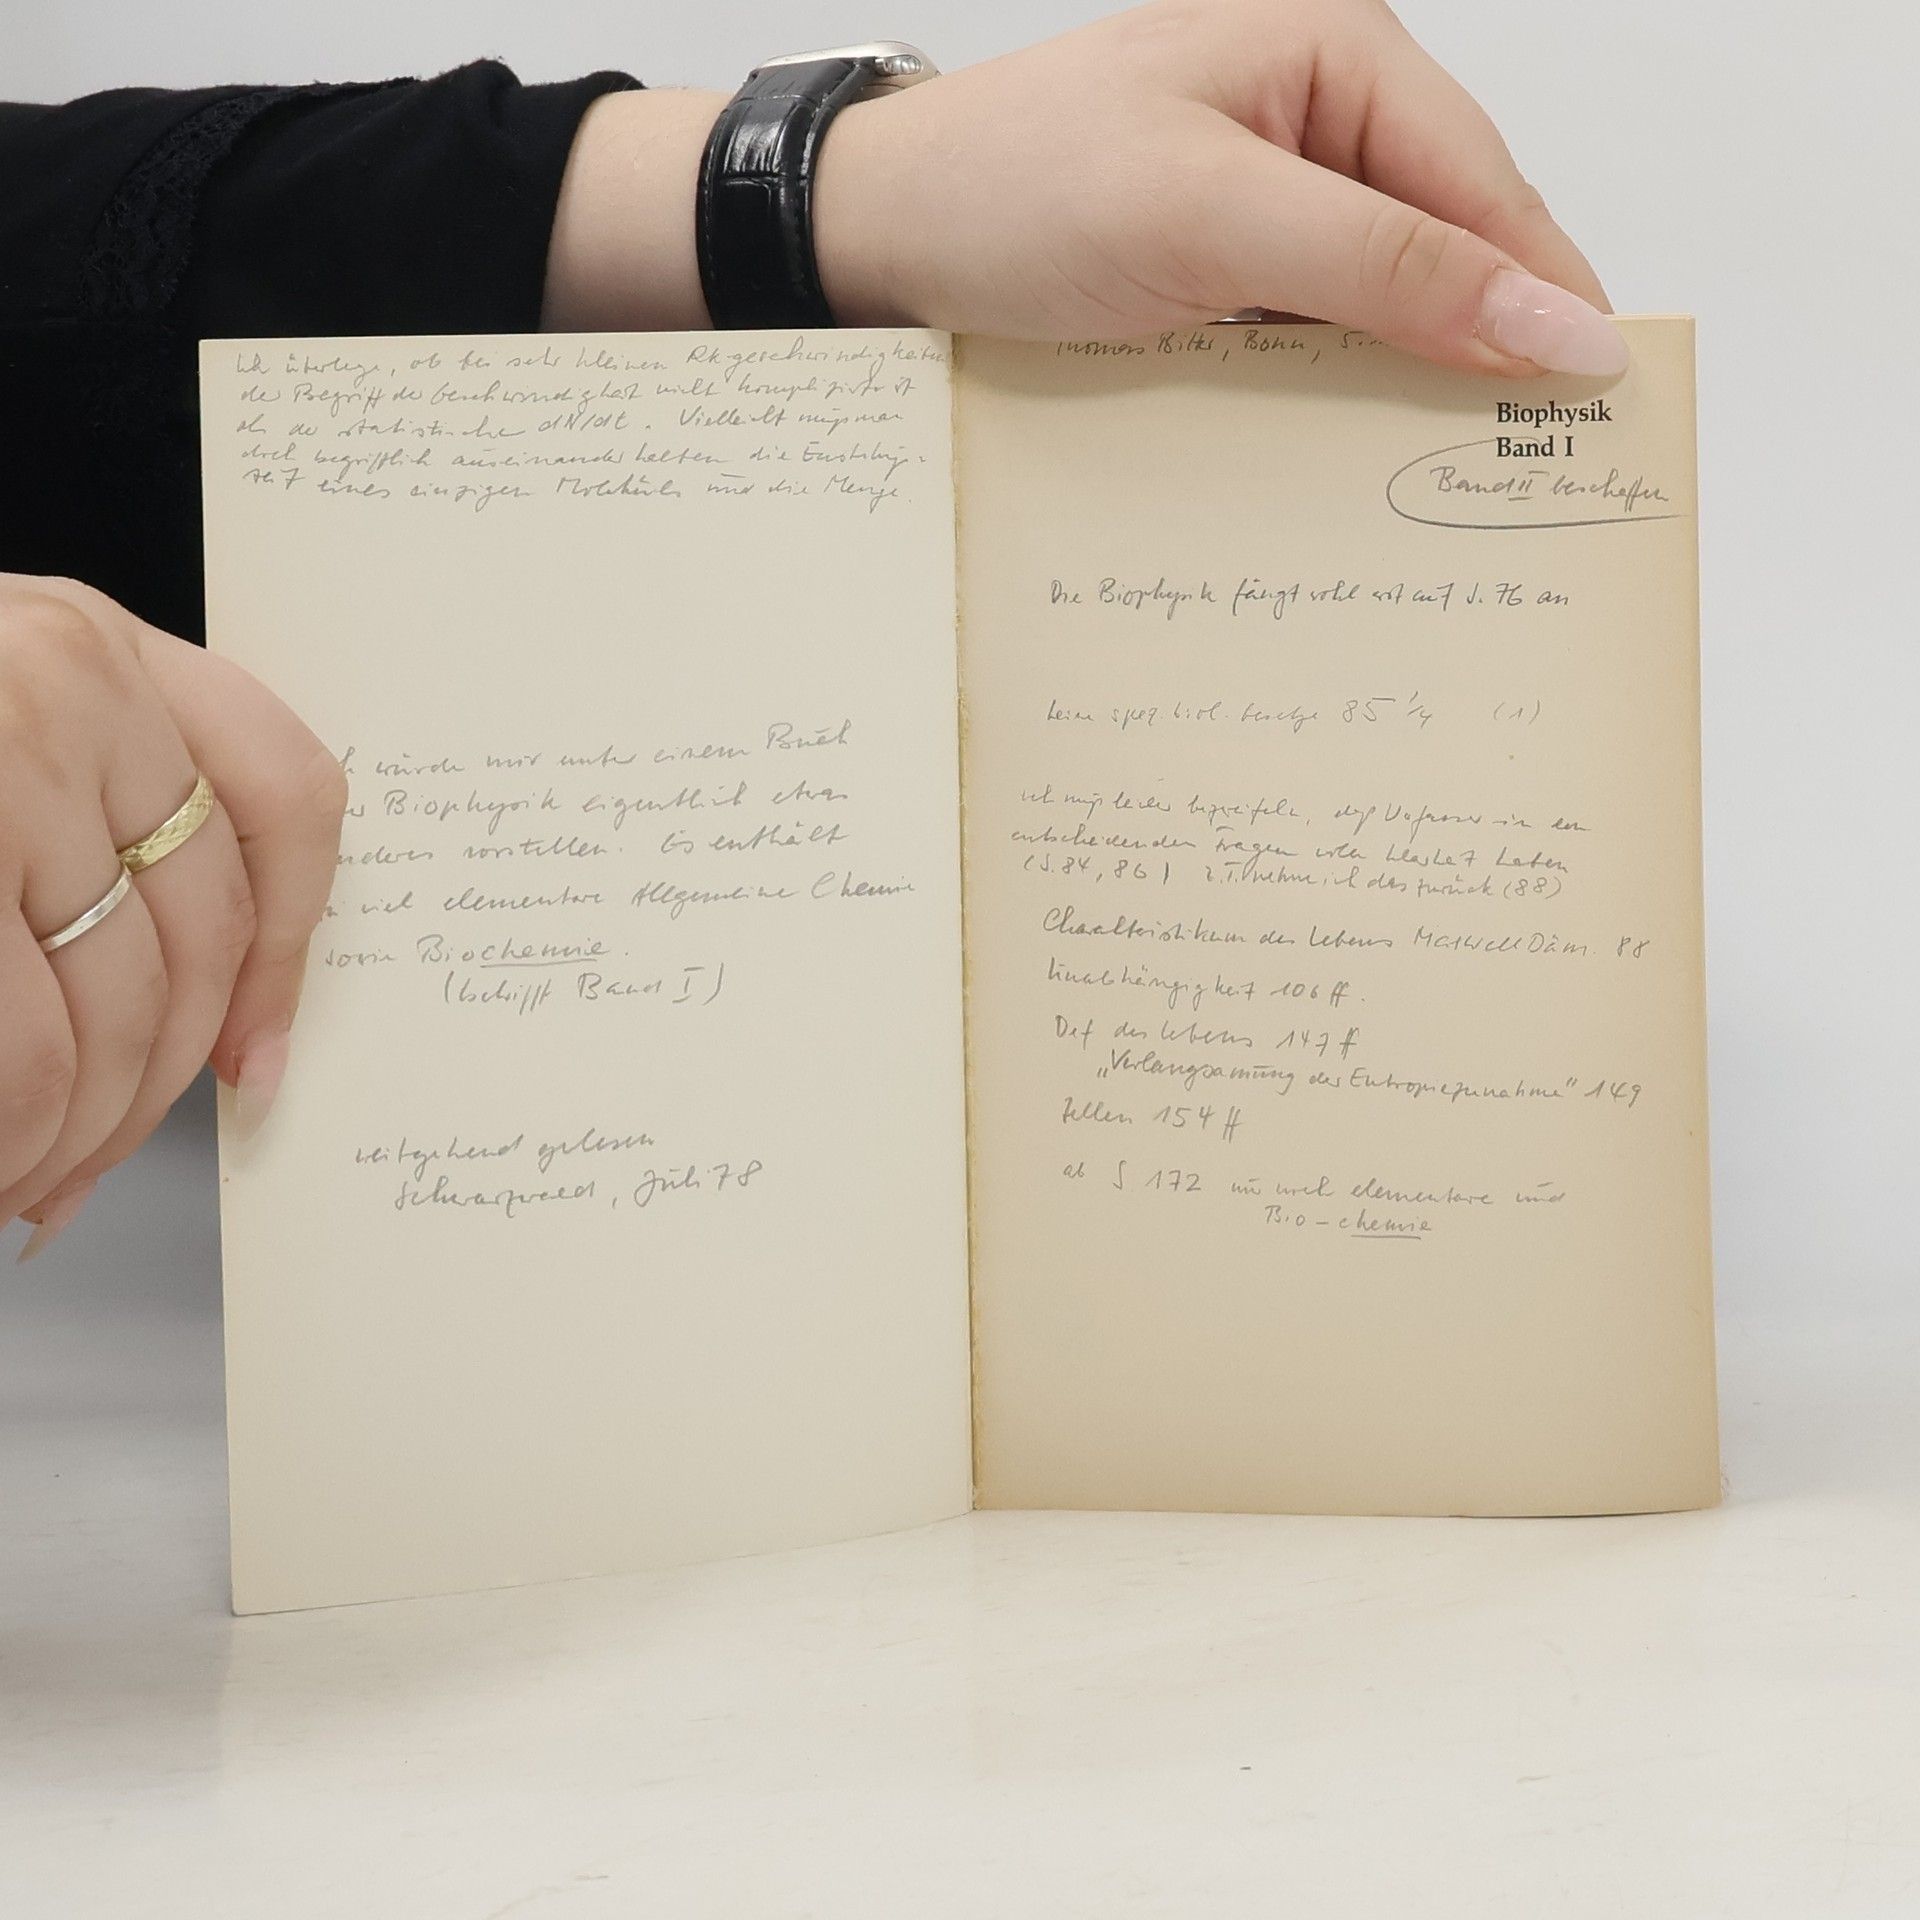 Ich überlege, ob bei sehr kleinen Rk-geschwindigkeiten
der Begriff der Geschwindigkeit nicht komplizierter ist
als der statistische dN/dt. Vielleicht muß man
doch begrifflich auseinanderhalten die Entstehungs-
zeit eines einzigen Moleküls und die Menge.
würde mir unter einem Buch
Biophysik eigentlich etwas
vorstellen. Es enthält
viel elementare Allgemeine Chemie
sowie Biochemie.
(betrifft Band I)
weitgehend gelesen
Schwarzwald, Juli 78
Thomas Bitter, Bonn,
Biophysik
Band I
Band II beschaffen
Die Biophysik fängt wohl erst auf S. 76 an
keine spez. biol. Gesetze 85 1/4 (1)
ich muß leider bezweifeln, daß Verfasser in den
entscheidenden Fragen volle Klarheit haben
(S. 84, 86) z.T. nehme ich das zurück (88)
Charakteristikum des Lebens Maxwell Däm. 88
Unabhängigkeit 106 ff.
Def des Lebens 147 ff
„Verlangsamung der Entropiezunahme" 149
Zellen 154 ff
ab S 172 nur noch elementare und
Bio-chemie